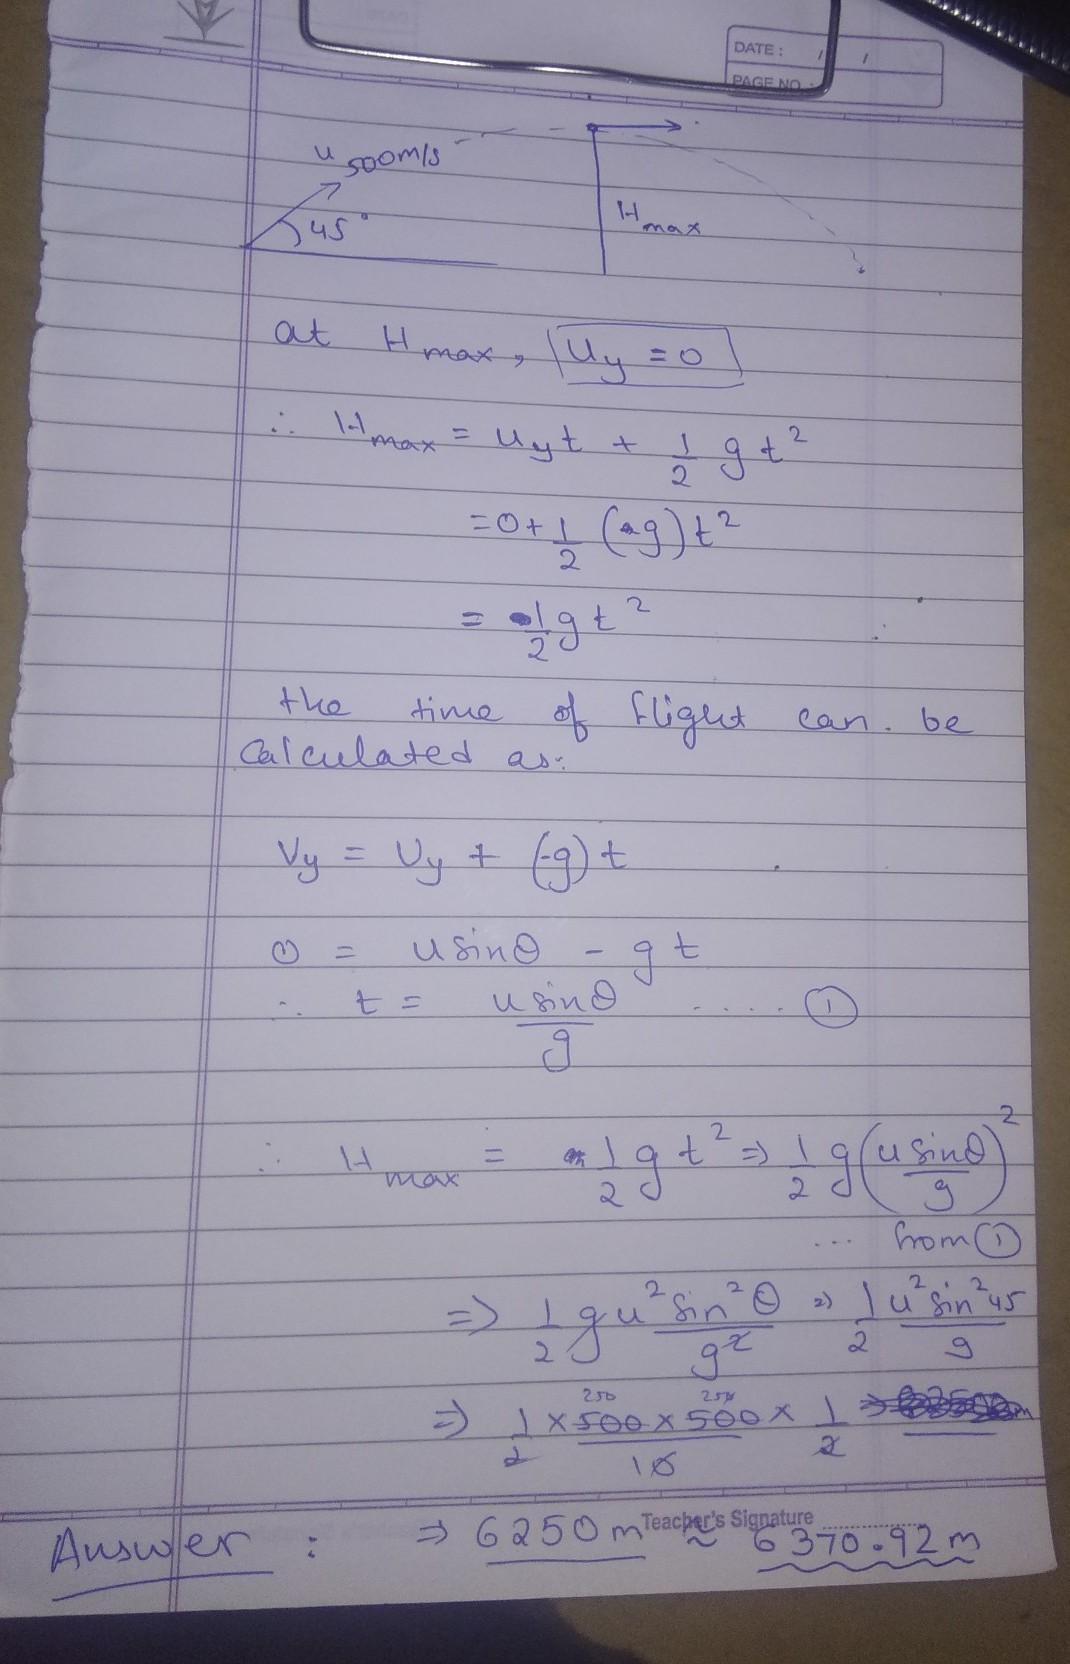 DATE: / /
PAGE NO.:
u 500m/s
45°
Hmax
at Hmax, Uy = 0
∴ Hmax = uyt + 1/2 gt²
= 0 + 1/2 (-g)t²
= 1/2 gt²
the time of flight can be
calculated as:
Vy = Uy + (-g)t
0 = u sinθ - gt
∴ t = u sinθ/g ..... ①
∴ Hmax = 1/2 gt² ⇒ 1/2 g(u sinθ/g)²
... from ①
⇒ 1/2 g u² sin²θ/g² ⇒ 1/2 u² sin²45/g
250 250
⇒ 1/2 × 500 × 500/10 × 1/2 ⇒
Teacher's Signature ................
Answer : ⇒ 6250 m ≈ 6370.92 m